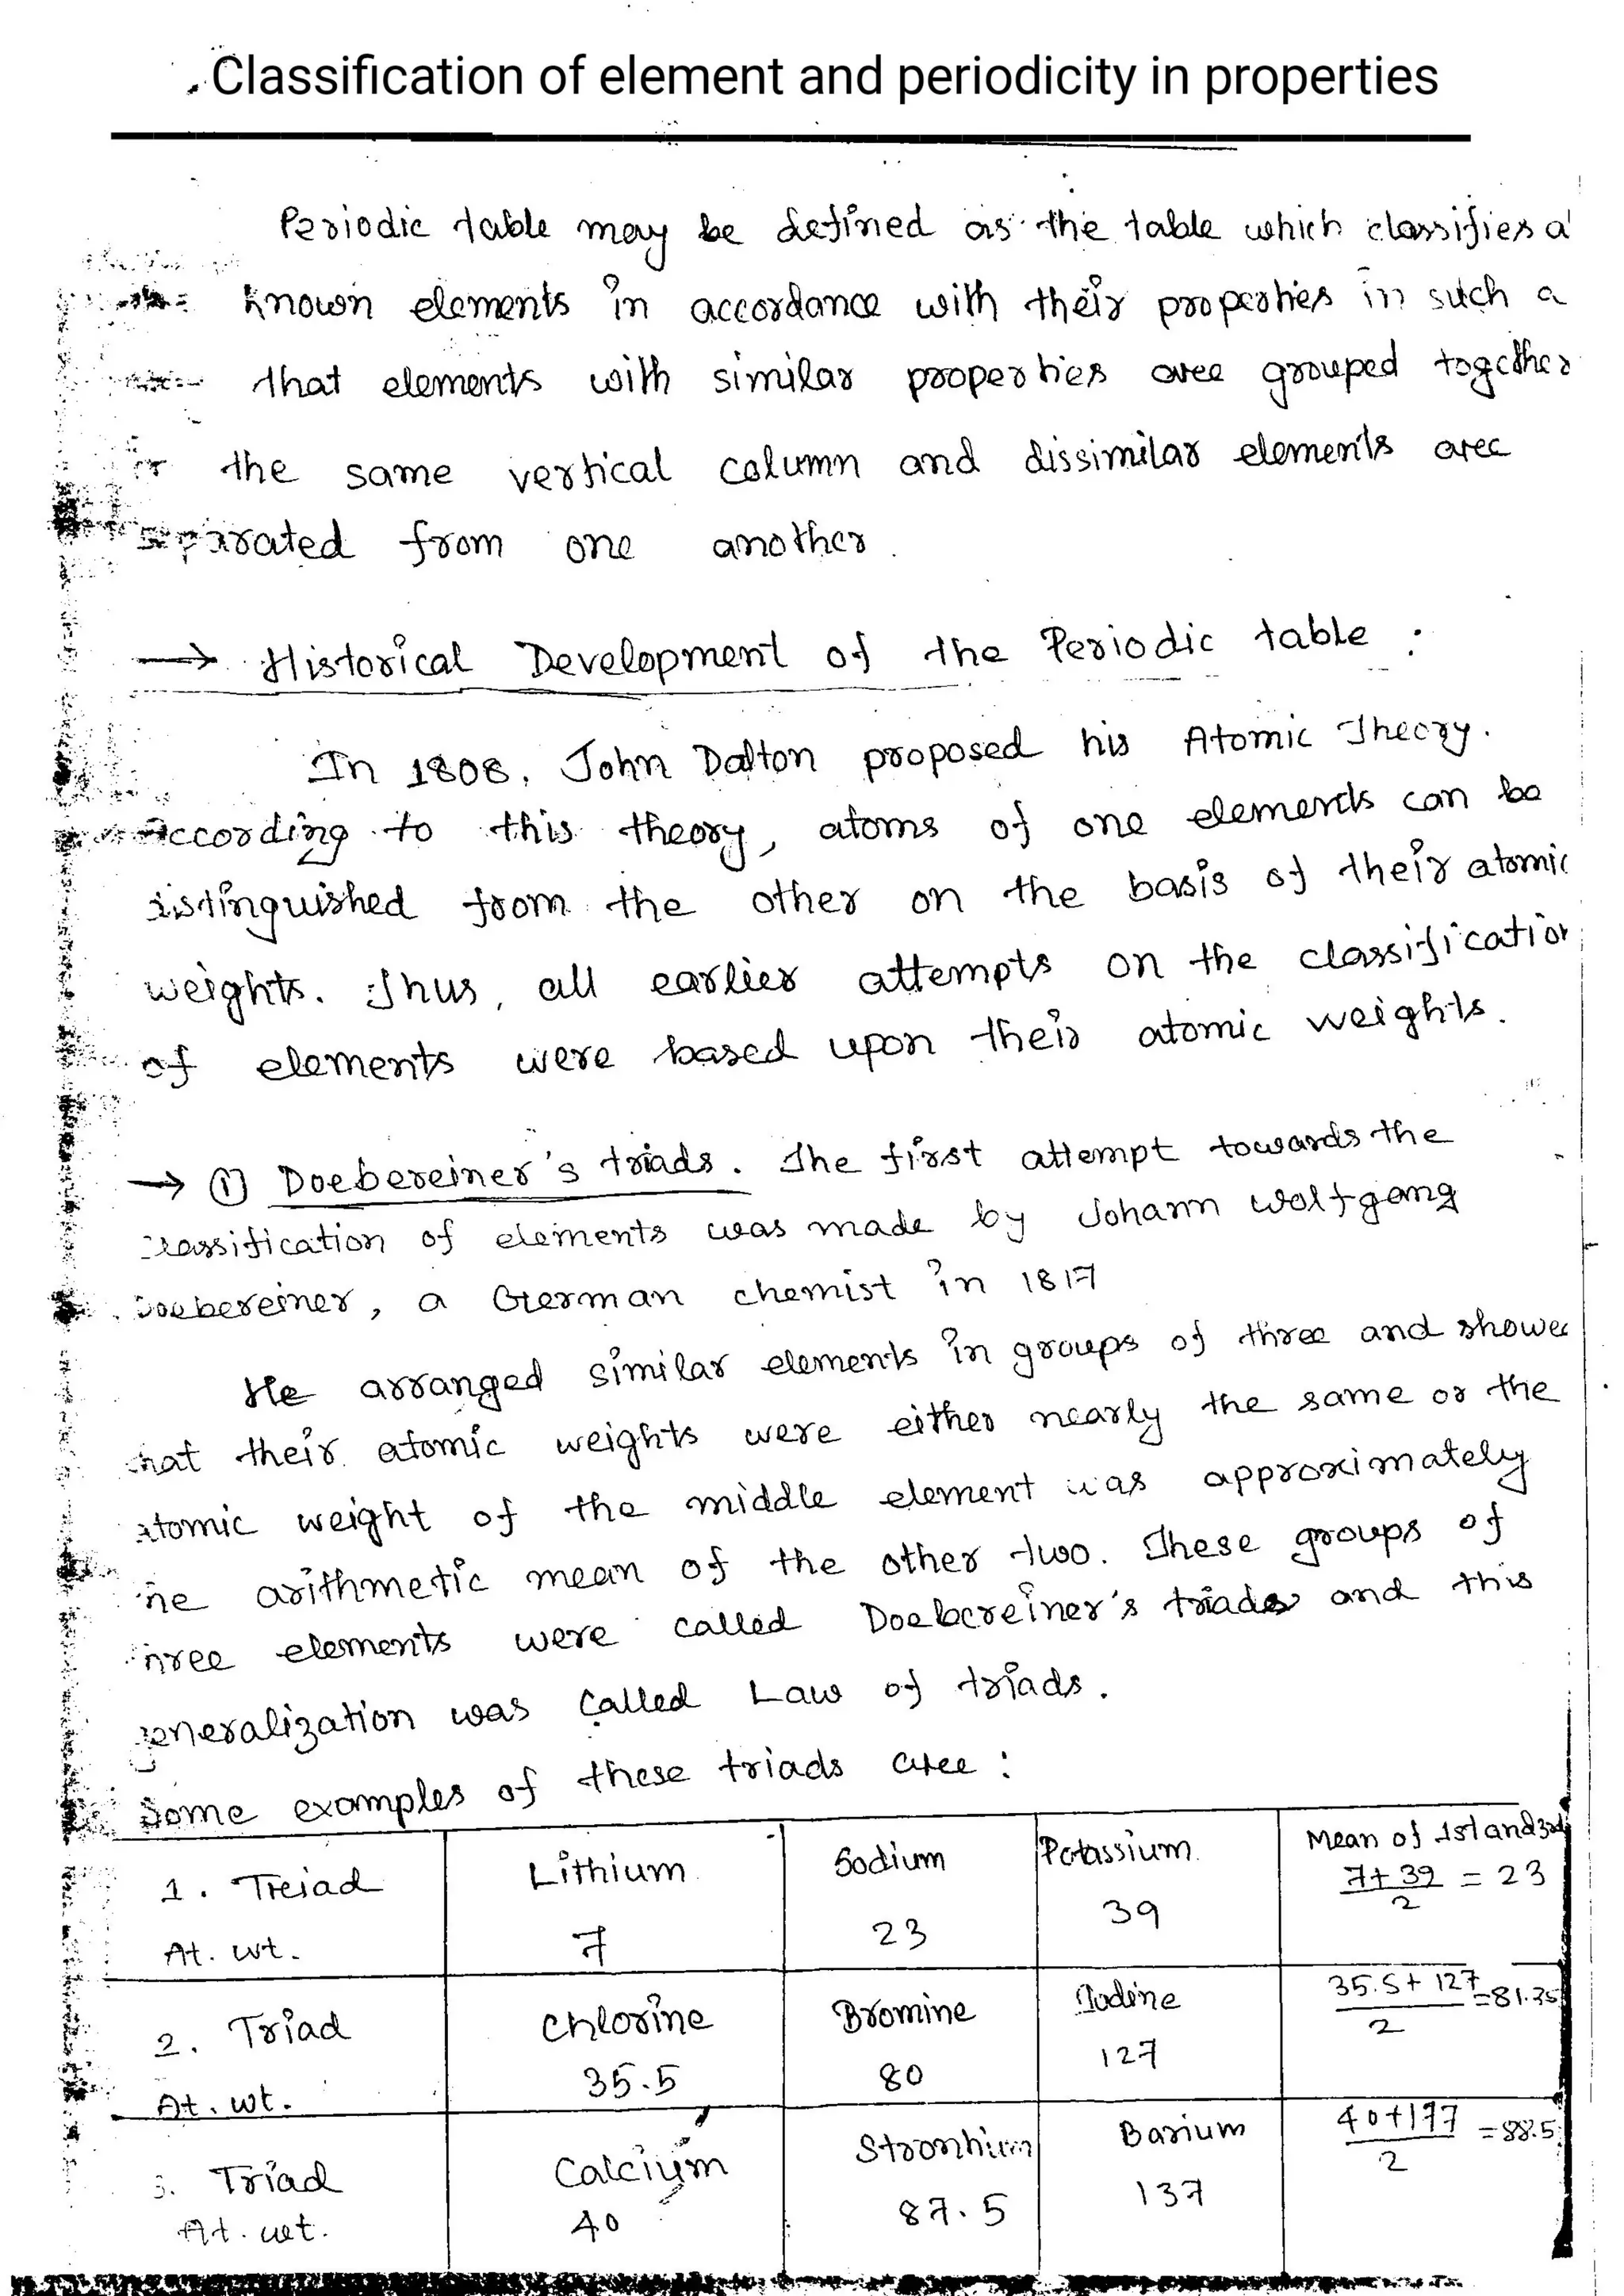 Classification of element and periodicity in properties
Periodic table may be defined as the table which classifies
known elements in accordance with their properties in such a
that elements with similar properties aree grouped together
the same vertical column and dissimilar elements aree
separated from one another.
→ Historical Development of the Periodic table :
In 1808, John Dalton proposed his Atomic Theory.
According to this theory, atoms of one elements can be
distinguished from the other on the basis of their atomic
weights. Thus, all earlier attempts on the classification
of elements were based upon their atomic weights.
→ ① Doebereiner's triads. The first attempt towards the
classification of elements was made by Johann Wolfgang
Doebereiner, a German chemist in 1817
He arranged similar elements in groups of three and showed
that their atomic weights were either nearly the same or the
atomic weight of the middle element was approximately
the arithmetic mean of the other two. These groups of
three elements were called Doebereiner's triads and this
generalization was called Law of triads.
Some examples of these triads aree :
1. Treiad Lithium Sodium Potassium Mean of 1st and 3rd
At. wt. 7 23 39 7+39/2 = 23
2. Triad Chlorine Bromine Iodine 35.5+127/2 =81.25
At. wt. 35.5 80 127
3. Triad Calcium Strontium Barium 40+177/2 =88.5
At. wt. 40 87.5 137